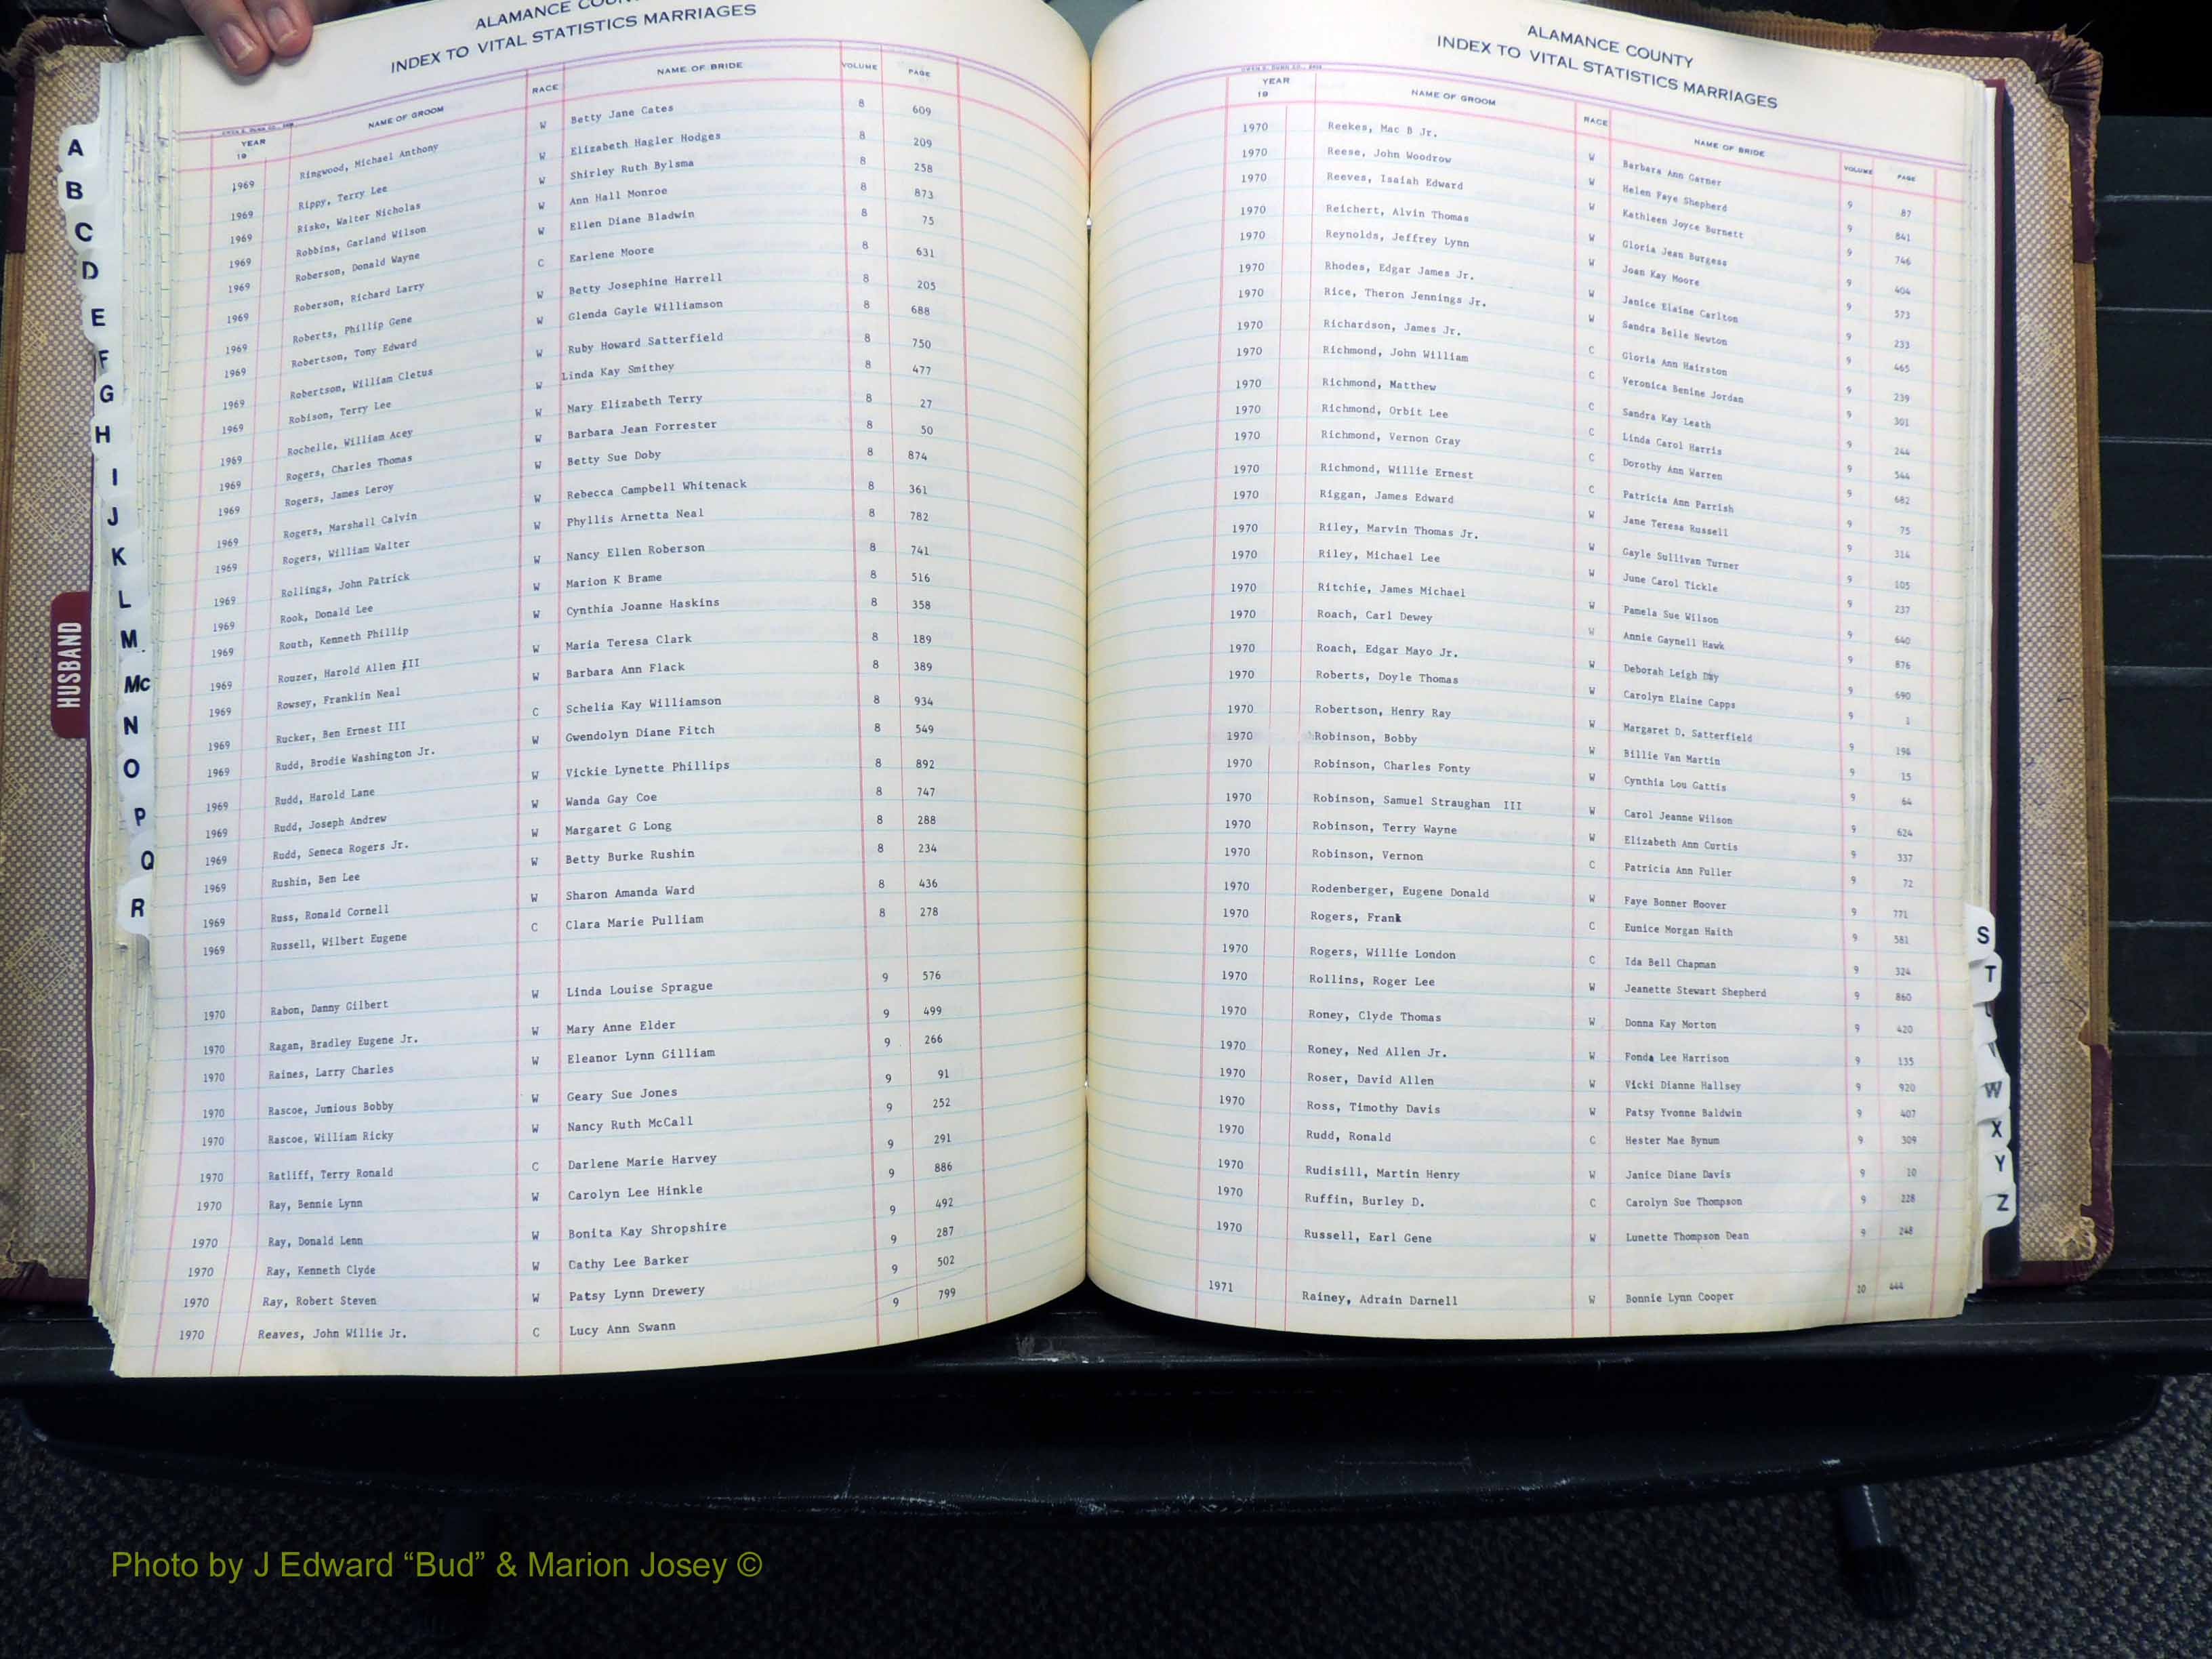 ALAMANCE
INDEX TO VITAL STATISTICS MARRIAGES
YEAR 19 NAME OF GROOM RACE NAME OF BRIDE VOLUME PAGE
1969 Ringwood, Michael Anthony W Betty Jane Cates 8 609
1969 Rippy, Terry Lee W Elizabeth Hagler Hodges 8 209
1969 Risko, Walter Nicholas W Shirley Ruth Bylsma 8 258
1969 Robbins, Garland Wilson W Ann Hall Monroe 8 873
1969 Roberson, Donald Wayne W Ellen Diane Bladwin 8 75
1969 Roberson, Richard Larry C Earlene Moore 8 631
1969 Roberts, Phillip Gene W Betty Josephine Harrell 8 205
1969 Robertson, Tony Edward W Glenda Gayle Williamson 8 688
1969 Robertson, William Cletus W Ruby Howard Satterfield 8 750
1969 Robison, Terry Lee W Linda Kay Smithey 8 477
1969 Rochelle, William Acey W Mary Elizabeth Terry 8 27
1969 Rogers, Charles Thomas W Barbara Jean Forrester 8 50
1969 Rogers, James Leroy W Betty Sue Doby 8 874
1969 Rogers, Marshall Calvin W Rebecca Campbell Whitenack 8 361
1969 Rogers, William Walter W Phyllis Arnetta Neal 8 782
1969 Rollings, John Patrick W Nancy Ellen Roberson 8 741
1969 Rook, Donald Lee W Marion K Brame 8 516
1969 Routh, Kenneth Phillip W Cynthia Joanne Haskins 8 358
1969 Rouzer, Harold Allen III W Maria Teresa Clark 8 189
1969 Rowsey, Franklin Neal W Barbara Ann Flack 8 389
1969 Rucker, Ben Ernest III C Schelia Kay Williamson 8 934
1969 Rudd, Brodie Washington Jr. W Gwendolyn Diane Fitch 8 549
1969 Rudd, Harold Lane W Vickie Lynette Phillips 8 892
1969 Rudd, Joseph Andrew W Wanda Gay Coe 8 747
1969 Rudd, Seneca Rogers Jr. W Margaret G Long 8 288
1969 Rushin, Ben Lee W Betty Burke Rushin 8 234
1969 Russ, Ronald Cornell W Sharon Amanda Ward 8 436
1969 Russell, Wilbert Eugene C Clara Marie Pulliam 8 278
1970 Rabon, Danny Gilbert W Linda Louise Sprague 9 576
1970 Ragan, Bradley Eugene Jr. W Mary Anne Elder 9 499
1970 Raines, Larry Charles W Eleanor Lynn Gilliam 9 266
1970 Rascoe, Junious Bobby W Geary Sue Jones 9 91
1970 Rascoe, William Ricky W Nancy Ruth McCall 9 252
1970 Ratliff, Terry Ronald C Darlene Marie Harvey 9 291
1970 Ray, Bennie Lynn W Carolyn Lee Hinkle 9 886
1970 Ray, Donald Lenn W Bonita Kay Shropshire 9 492
1970 Ray, Kenneth Clyde W Cathy Lee Barker 9 287
1970 Ray, Robert Steven W Patsy Lynn Drewery 9 502
1970 Reaves, John Willie Jr. C Lucy Ann Swann 9 799
ALAMANCE COUNTY
INDEX TO VITAL STATISTICS MARRIAGES
YEAR 19 NAME OF GROOM RACE NAME OF BRIDE VOLUME PAGE
1970 Reekes, Mac B Jr. W Barbara Ann Garner 9 87
1970 Reese, John Woodrow W Helen Faye Shepherd 9 841
1970 Reeves, Isaiah Edward W Kathleen Joyce Burnett 9 746
1970 Reichert, Alvin Thomas W Gloria Jean Burgess 9 404
1970 Reynolds, Jeffrey Lynn W Joan Kay Moore 9 573
1970 Rhodes, Edgar James Jr. W Janice Elaine Carlton 9 233
1970 Rice, Theron Jennings Jr. W Sandra Belle Newton 9 465
1970 Richardson, James Jr. C Gloria Ann Hairston 9 239
1970 Richmond, John William C Veronica Benine Jordan 9 301
1970 Richmond, Matthew C Sandra Kay Leath 9 244
1970 Richmond, Orbit Lee C Linda Carol Harris 9 544
1970 Richmond, Vernon Gray C Dorothy Ann Warren 9 682
1970 Richmond, Willie Ernest C Patricia Ann Parrish 9 75
1970 Riggan, James Edward W Jane Teresa Russell 9 314
1970 Riley, Marvin Thomas Jr. W Gayle Sullivan Turner 9 105
1970 Riley, Michael Lee W June Carol Tickle 9 237
1970 Ritchie, James Michael W Pamela Sue Wilson 9 640
1970 Roach, Carl Dewey W Annie Gaynell Hawk 9 876
1970 Roach, Edgar Mayo Jr. W Deborah Leigh Day 9 690
1970 Roberts, Doyle Thomas W Carolyn Elaine Capps 9 1
1970 Robertson, Henry Ray W Margaret D. Satterfield 9 198
1970 Robinson, Bobby W Billie Van Martin 9 15
1970 Robinson, Charles Fonty W Cynthia Lou Gattis 9 64
1970 Robinson, Samuel Straughan III W Carol Jeanne Wilson 9 624
1970 Robinson, Terry Wayne W Elizabeth Ann Curtis 9 337
1970 Robinson, Vernon C Patricia Ann Fuller 9 72
1970 Rodenberger, Eugene Donald W Faye Bonner Hoover 9 771
1970 Rogers, Frank C Eunice Morgan Haith 9 581
1970 Rogers, Willie London C Ida Bell Chapman 9 324
1970 Rollins, Roger Lee W Jeanette Stewart Shepherd 9 860
1970 Roney, Clyde Thomas W Donna Kay Morton 9 420
1970 Roney, Ned Allen Jr. W Fonda Lee Harrison 9 135
1970 Roser, David Allen W Vicki Dianne Hallsey 9 920
1970 Ross, Timothy Davis W Patsy Yvonne Baldwin 9 407
1970 Rudd, Ronald C Hester Mae Bynum 9 309
1970 Rudisill, Martin Henry W Janice Diane Davis 9 10
1970 Ruffin, Burley D. C Carolyn Sue Thompson 9 228
1970 Russell, Earl Gene W Lunette Thompson Dean 9 248
1971 Rainey, Adrain Darnell W Bonnie Lynn Cooper 10 444
A
B
C
D
E
F
G
H
I
J
K
L
M
Mc
N
O
P
Q
R
HUSBAND
S
T
W
X
Y
Z
Photo by J Edward “Bud” & Marion Josey ©